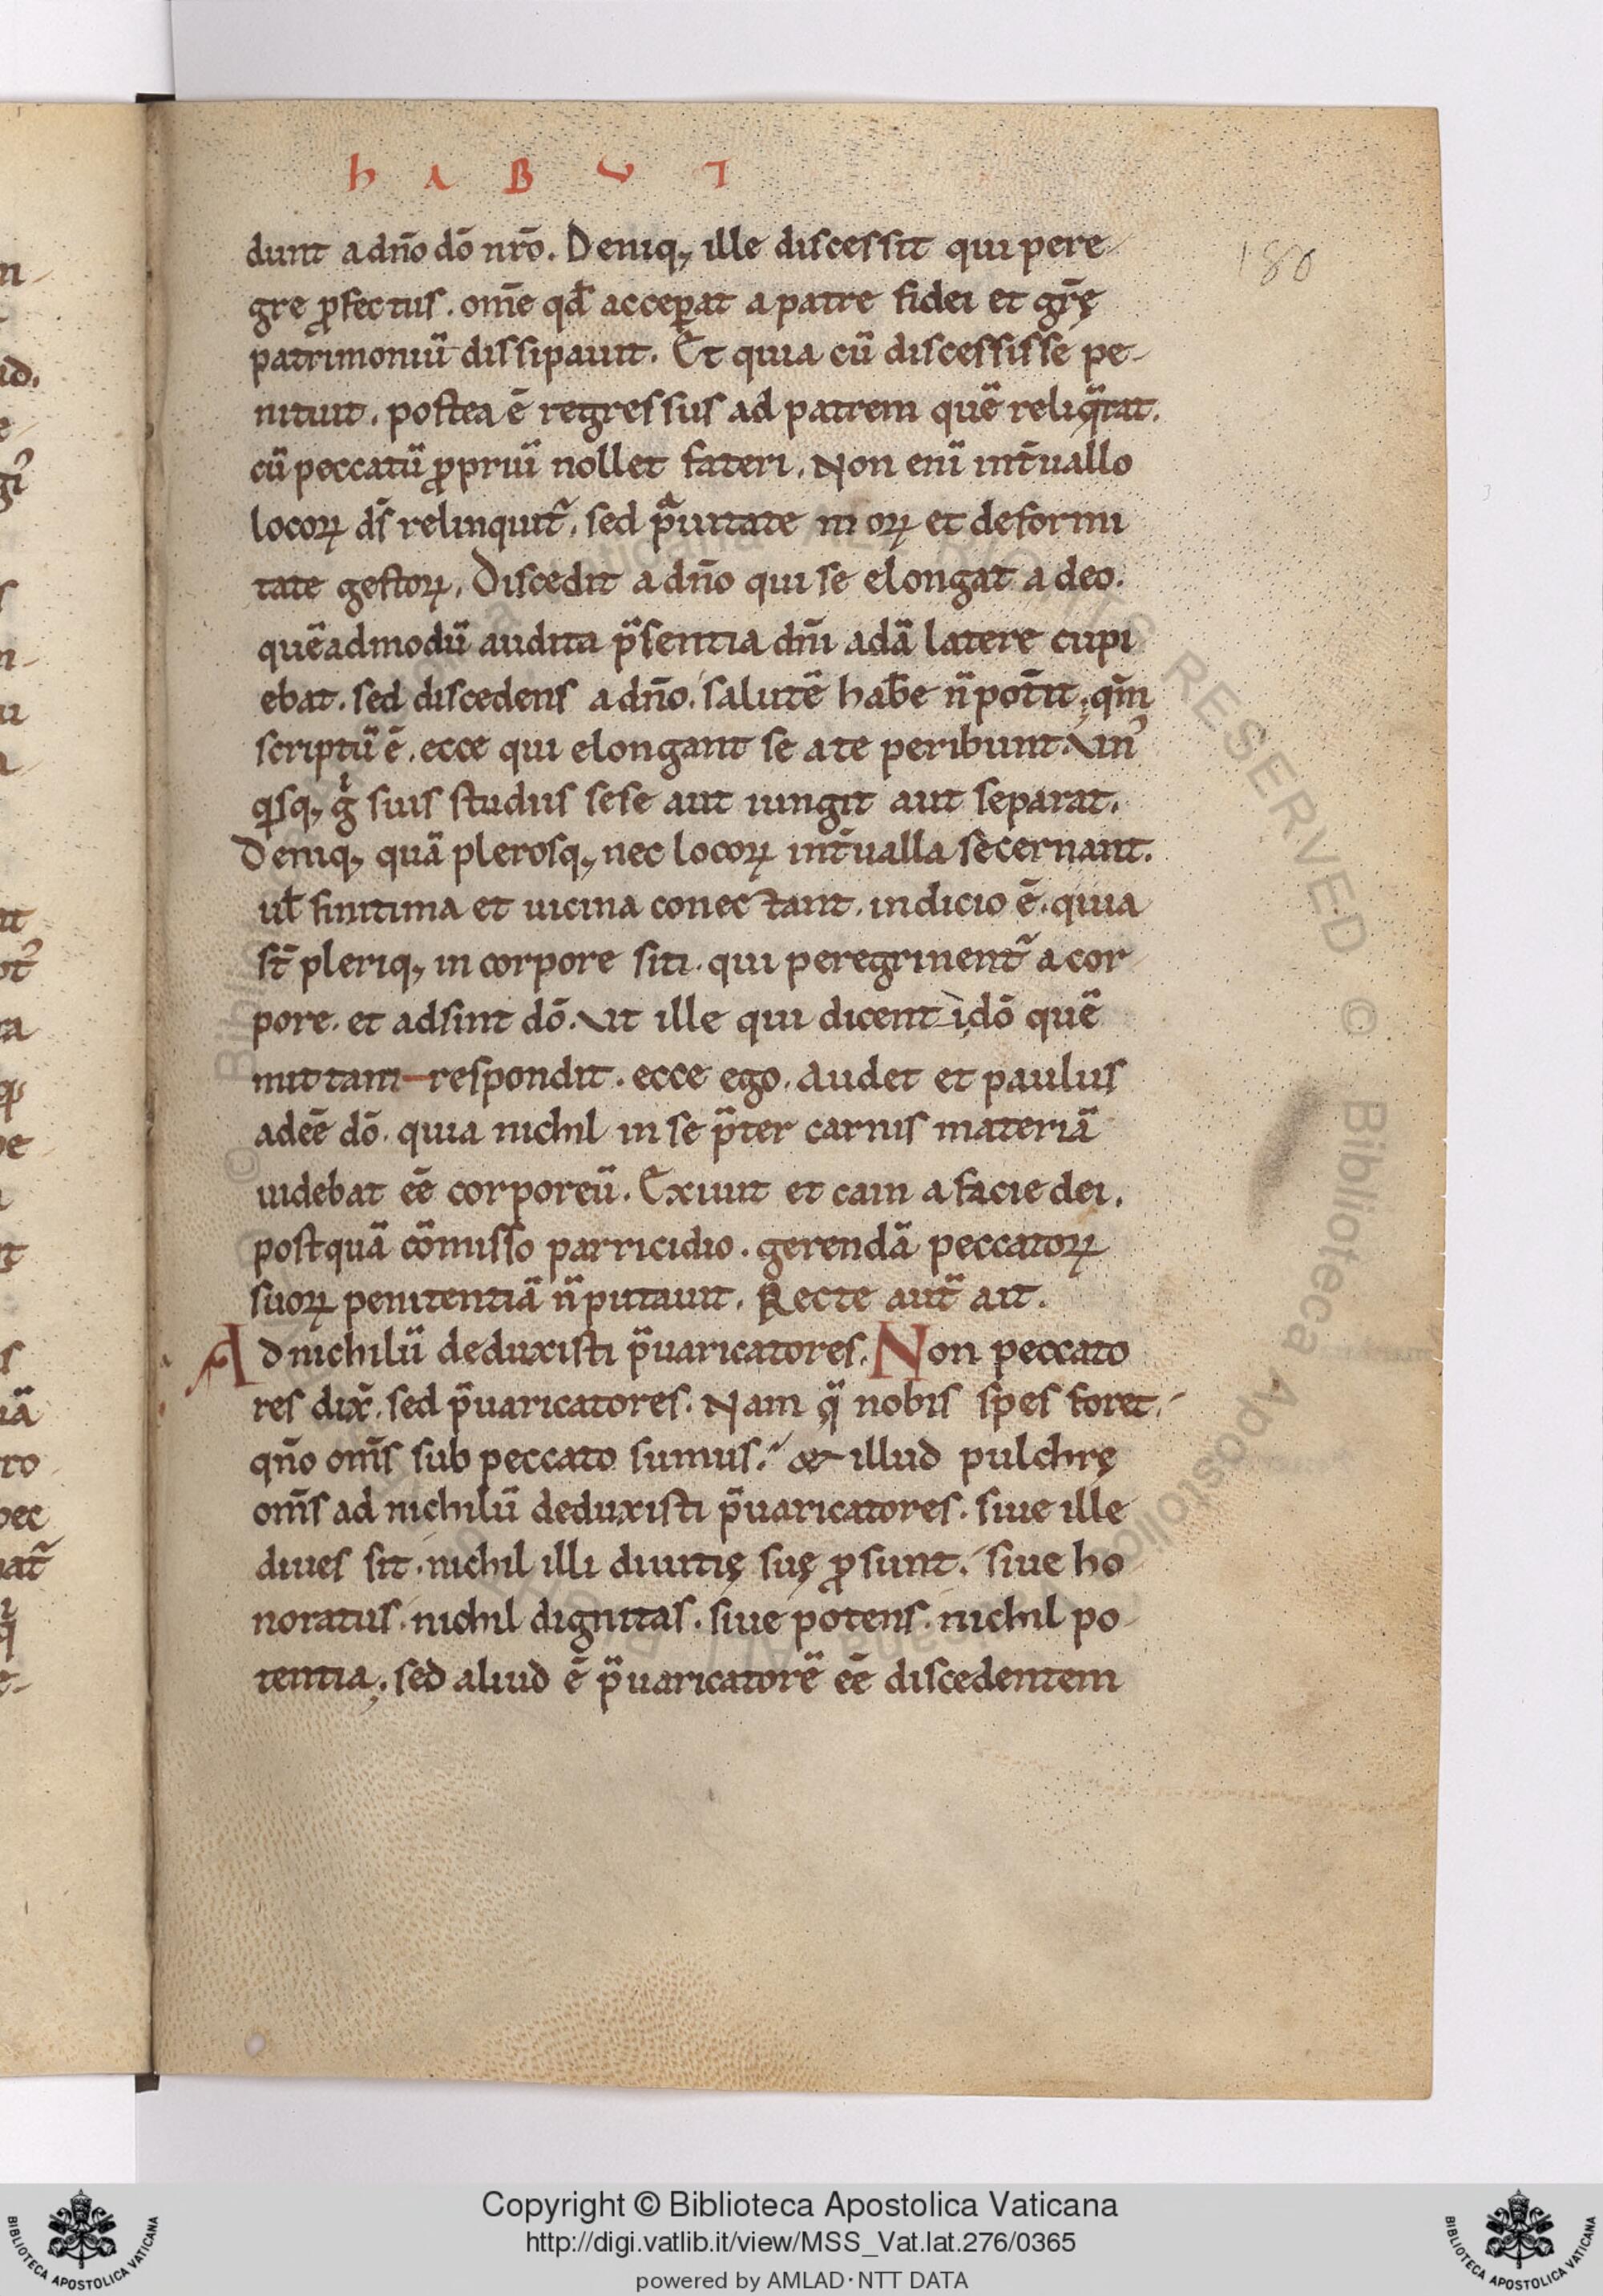 h A B V T
dunt a dño dō nr̄o. Deniq; ille discessit qui pere-
180
gre ꝓfectus. om̄e qđ acceꝑat a patre fidei et gr̄ę
patrimoniū dissipauit. Et quia cū discessisse pe-
nituit. postea ē regressus ad patrem quē reliq̄rat.
cū peccatū ꝓpriū nollet fateri. Non enī int̄uallo
locoꝝ ds̄ relinquit᷑. sed p̄uitate moꝝ et deformi
tate gestoꝝ. Discedit a dño qui se elongat a deo.
quēadmodū audita p̄sentia dñi adā latere cupi
ebat. sed discedens a dño. salutē hab̄e n̄ pot̄it. qm̄
scriptū ē. ecce qui elongant se a te peribunt. Vn᾽
q̇sq; g̊ suis studiis sese aut iungit aut separat.
Deniq; quā plerosq; nec locoꝝ int̄ualla secernant.
ul̄ finitima et uicina conectant. indicio ē. quia
st̄ pleriq; in corpore siti. qui peregrinent᷑ a cor-
pore. et adsint dō. Vt ille qui dicenti dō quē
mittam respondit. ecce ego. Audet et paulus
adeē dō. quia nichil in se p̄ter carnis materiā
uidebat eē corporeū. Exiuit et cain a facie dei.
postquā cōmisso parricidio. gerendā peccatoꝝ
suoꝝ penitentiā n̄ putauit. Recte aut̄ ait.
Ad nichilū deduxisti p̄uaricatores. Non peccato
res dix̄. sed p̄uaricatores. Nam q̄ nobis spes foret.
qn̄o om̄s sub peccato sumus. & illud pulchrę
om̄s ad nichilū deduxisti p̄uaricatores. siue ille
diues sit. nichil illi diuitię suę ꝓsunt. siue ho
noratus. nichil dignitas. siue potens. nichil po-
tentia; sed aliud ē p̄uaricatorē eē discedentem
Copyright © Biblioteca Apostolica Vaticana
http://digi.vatlib.it/view/MSS_Vat.lat.276/0365
powered by AMLAD·NTT DATA
BIBLIOTECA APOSTOLICA VATICANA
BIBLIOTECA APOSTOLICA VATICANA